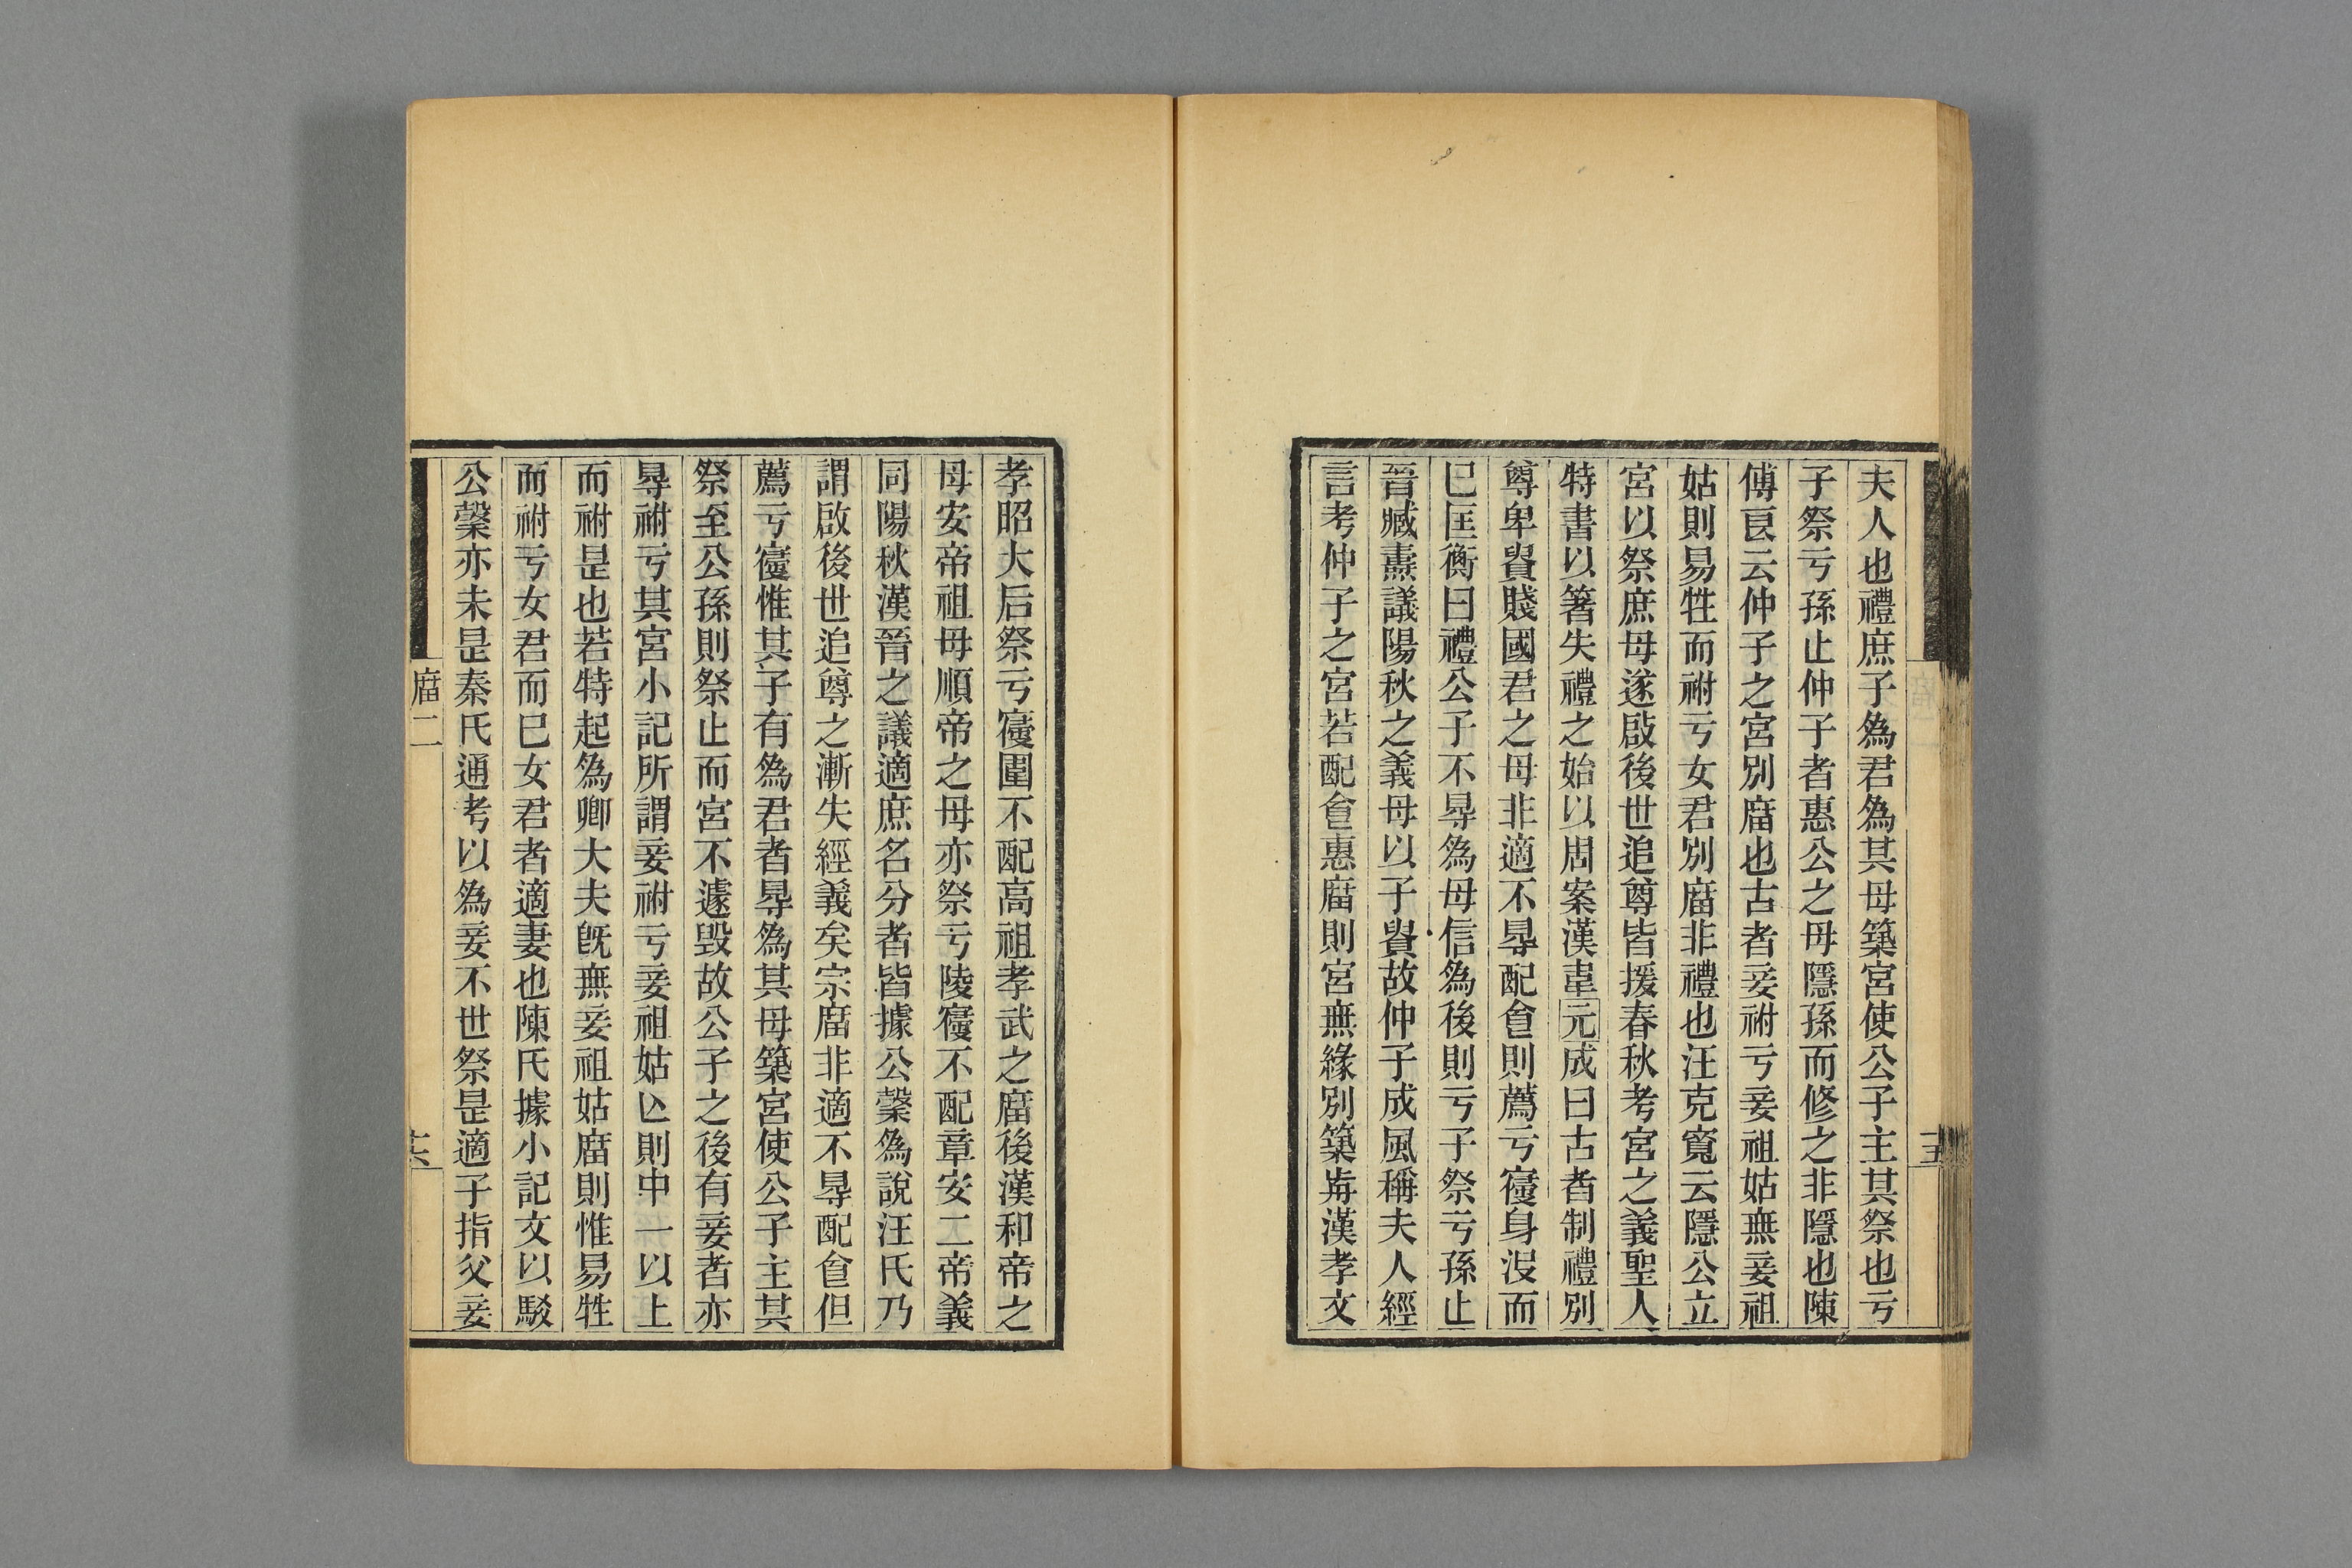 夫人也禮庶子為君為其母築宮使公子主其祭也亏
子祭亏孫止仲子者惠公之母隱孫而修之非隱也陳
傅良云仲子之宮別庿也古者妾祔亏妾祖姑無妾祖
姑則易牲而祔亏女君別庿非禮也汪克寬云隱公立
宮以祭庶母遂啟後世追尊皆援春秋考宮之義聖人
特書以箸失禮之始以周案漢韋元成曰古者制禮別
尊卑貴賤國君之母非適不㝵配㑹則薦亏寑身沒而
已匡衡曰禮公子不㝵為母信為後則亏子祭亏孫止
晉臧燾議陽秋之義母以子貴故仲子成風稱夫人經
言考仲子之宮若配㑹惠庿則宮無緣別築歬漢孝文
孝昭大后祭亏寑園不配高祖孝武之庿後漢和帝之
母安帝祖母順帝之母亦祭亏陵寑不配章安二帝義
同陽秋漢晉之議適庶名分者皆據公榖為說汪氏乃
謂啟後世追尊之漸失經義矣宗庿非適不㝵配㑹但
薦亏寑惟其子有為君者㝵為其母築宮使公子主其
祭至公孫則祭止而宮不遽毀故公子之後有妾者亦
㝵祔亏其宮小記所謂妾祔亏妾祖姑亾則中一以上
而祔是也若特起為卿大夫旣無妾祖姑庿則惟易牲
而祔亏女君而已女君者適妻也陳氏據小記文以駁
公榖亦未是秦氏通考以為妾不世祭是適子指父妾
庿二
十六
十五